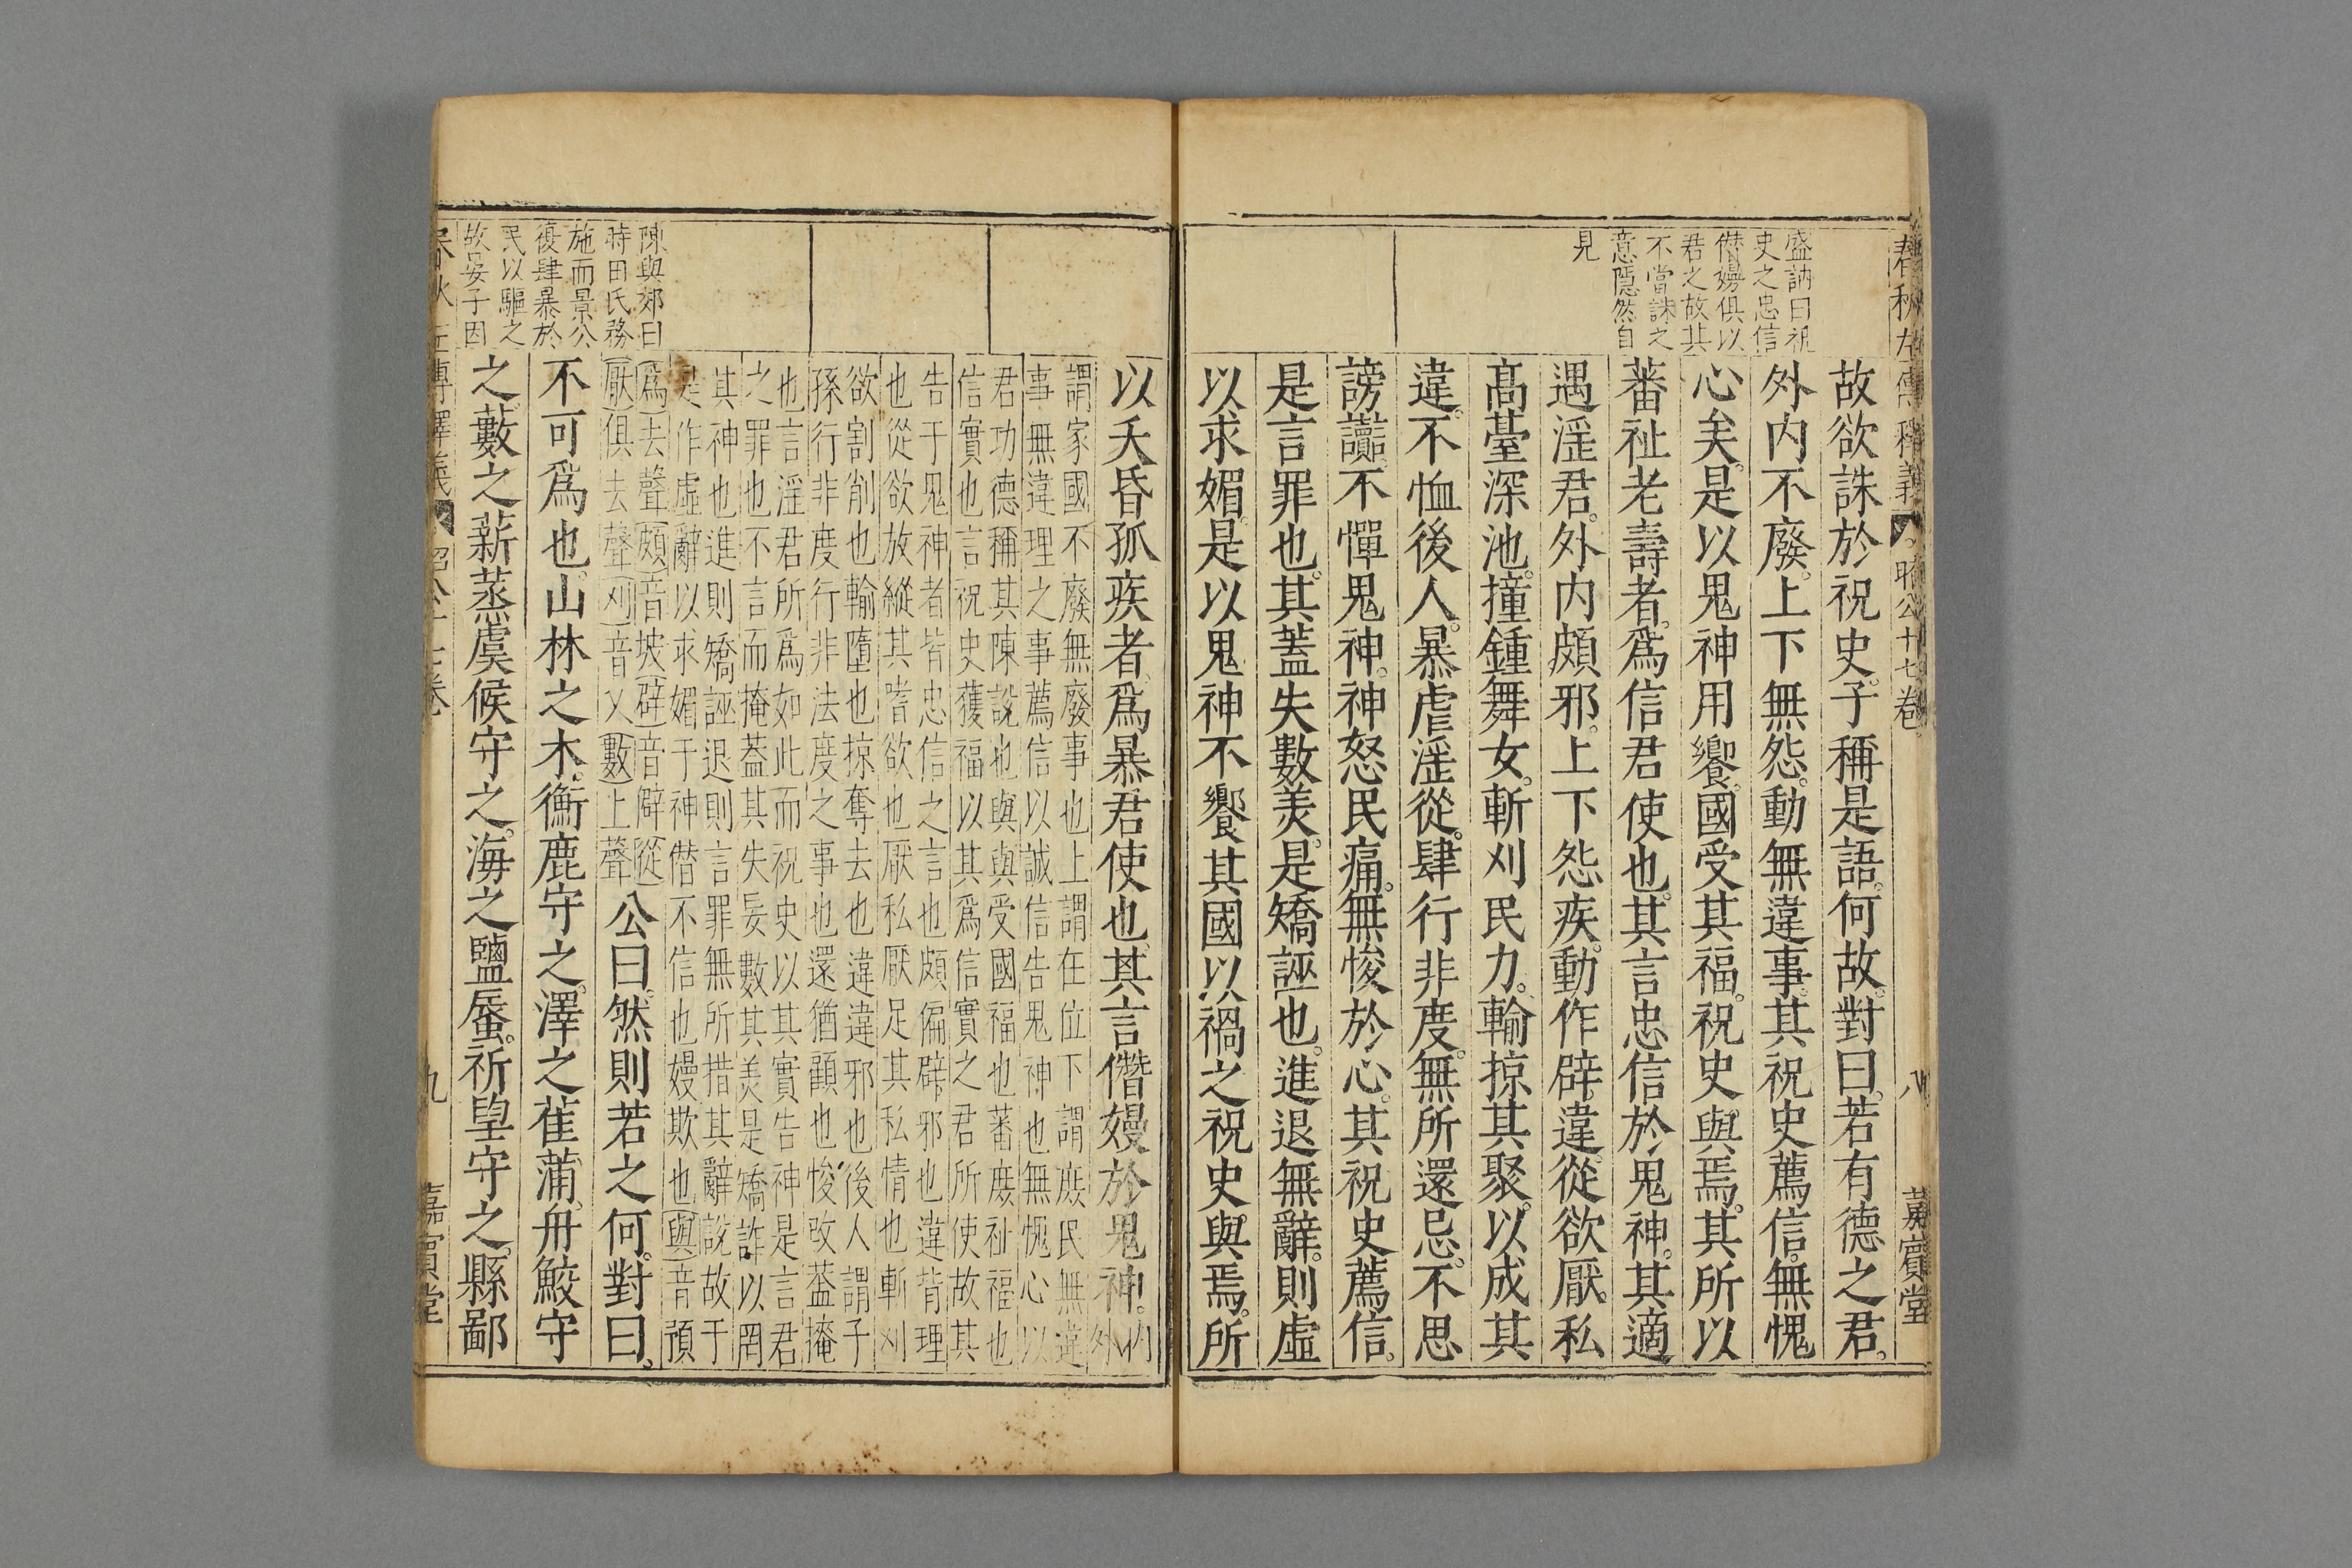 春秋左傳釋義 昭公十七卷 八 嘉賓堂
盛訥曰祝
史之忠信
僭嫚俱以
君之故其
不當誅之
意隱然自
見
故欲誅於祝史。子稱是語。何故。對曰。若有德之君。
外内不廢。上下無怨。動無違事。其祝史薦信。無愧
心矣。是以鬼神用饗。國受其福。祝史與焉。其所以
蕃祉老壽者。爲信君使也。其言忠信於鬼神。其適
遇淫君。外内頗邪。上下怨疾。動作辟違。從欲厭私
高臺深池。撞鍾舞女。斬刈民力。輸掠其聚。以成其
違。不恤後人。暴虐淫從。肆行非度。無所還忌。不思
謗讟。不憚鬼神。神怒民痛。無悛於心。其祝史薦信。
是言罪也。其蓋失數美。是矯誣也。進退無辭。則虛
以求媚。是以鬼神不饗其國以禍之。祝史與焉。所
以夭昏孤疾者。爲暴君使也。其言僭嫚於鬼神。内
外
謂家國不廢無廢事也上謂在位下謂庶民無違
事無違理之事薦信以誠信告鬼神也無愧心以
君功德稱其陳說也與與受國福也蕃庶祉福也
信實也言祝史獲福以其爲信實之君所使故其
告于鬼神者皆忠信之言也頗偏辟邪也違背理
也從欲放縱其嗜欲也厭私厭足其私情也斬刈
欲割削也輸墮也掠奪去也違違邪也後人謂子
孫行非度行非法度之事也還猶顧也悛改蓋掩
也言淫君所爲如此而祝史以其實告神是言君
之罪也不言而掩蓋其失妄數其美是矯詐以罔
其神也進則矯誣退則言罪無所措其辭說故于
是作虛辭以求媚于神僭不信也嫚欺也與音預
爲去聲頗音坡辟音僻從
厭俱去聲刈音乂數上聲
公曰。然則若之何。對曰。
不可爲也。山林之木。衡鹿守之。澤之萑蒲。舟鮫守
之。藪之薪蒸。虞候守之。海之鹽蜃。祈望守之。縣鄙
陳與郊曰
時田氏務
施而景公
復肆暴於
民以驅之
故晏子因
春秋左傳釋義 昭公十七卷 九 嘉賓堂